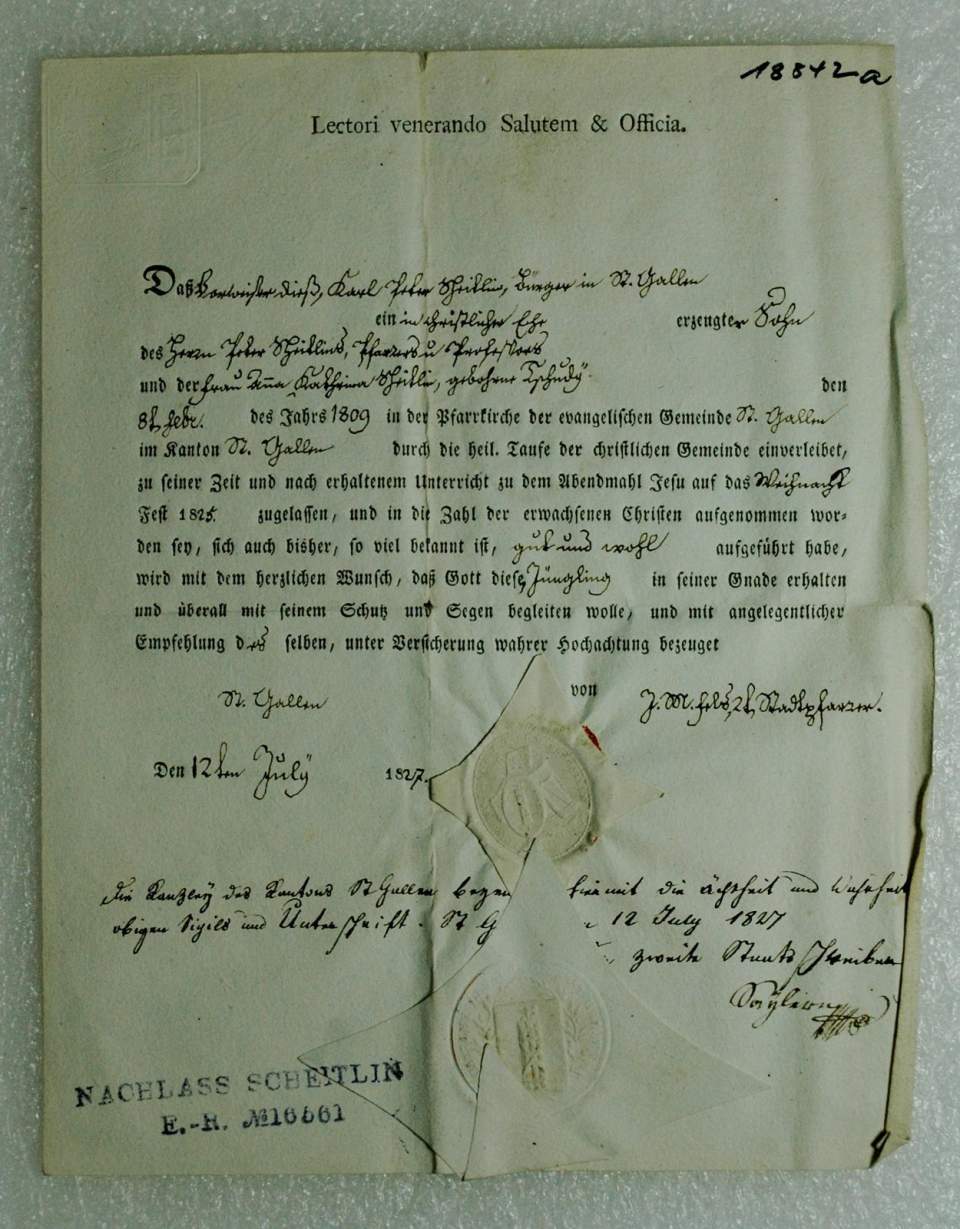 18842a
Lectori venerando Salutem & Officia.
Daß Vorweiser dieß, Karl Peter Scheitlin, Bürger in St. Gallen
ein in christlicher Ehe erzeugter Sohn
des Herrn Peter Scheitlins, Pfarrers u Professors
und der Frau Anna Kathrina Scheitlin, gebohrne Tschudy den
8t. Febr. des Jahrs 1809 in der Pfarrkirche der evangelischen Gemeinde St. Gallen
im Kanton St. Gallen durch die heil. Taufe der christlichen Gemeinde einverleibet,
zu seiner Zeit und nach erhaltenem Unterricht zu dem Abendmahl Jesu auf das Weihnacht
Fest 1825. zugelassen, und in die Zahl der erwachsenen Christen aufgenommen wor-
den sey, sich auch bisher, so viel bekannt ist, gut und wohl aufgeführt habe,
wird mit dem herzlichen Wunsch, daß Gott diesen Jüngling in seiner Gnade erhalten
und überall mit seinem Schutz und Segen begleiten wolle, und mit angelegentlicher
Empfehlung desselben, unter Versicherung wahrer Hochachtung bezeuget
von
St. Gallen J. M. Fels, Stadtpfarrer.
Den 12ten July 1827.
Die Kanzley des Kantons St Gallen bezeu hiemit die Ächtheit und Wahrheit
obigen Sigils und Unterschrift. St G 12 July 1827
zweite Staatsschreiber
NACHLASS SCHEITLIN
E.-R. №16661